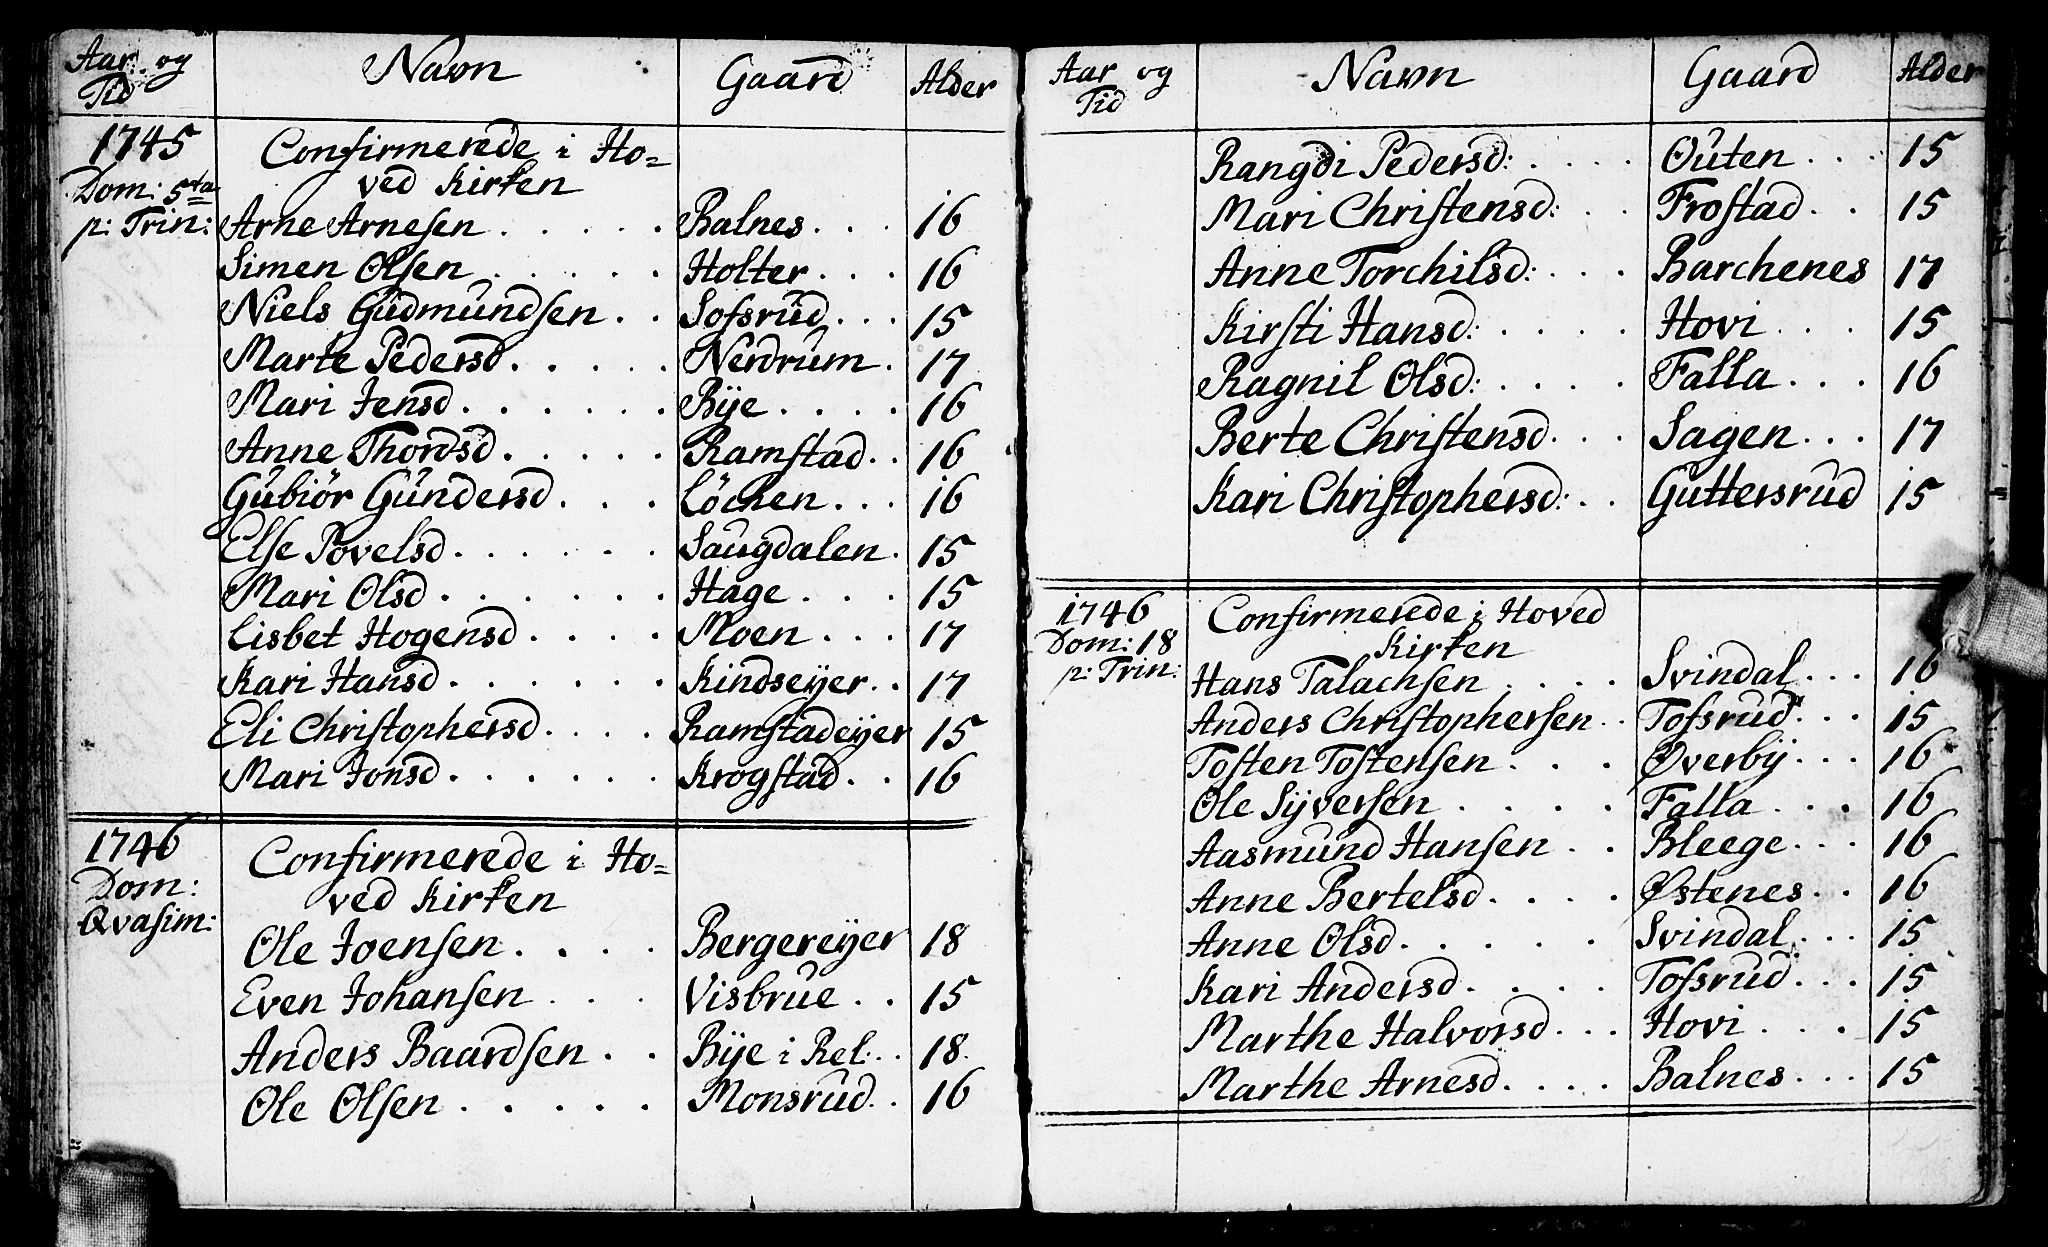 Aar og Tid Navn Gaard Alder
1745 Confirmerede i Ho=
Dom: 5ta ved Kirken
p: Trin: Arne Arnesen . . . . . Balnes . . . 16
Simen Olsen . . . . . Holter . . . 16
Niels Gudmundsen . . Sofsrud . . . 15
Marte Pedersd . . . . . Nerdrum . 17
Mari Jensd . . . . . . Bÿe . . . . 16
Anne Thordsd . . . . . Ramstad . . 16
Gubiör Gundersd . . . Löchen . . . 16
Else Povelsd . . . . . . Saugdalen . 15
Mari Olsd . . . . . . Hage . . . 15
Lisbet Hogensd . . . . Moen . . . 17
Kari Hansd . . . . . . Kindseÿer . . 17
Eli Christophersd . . . . Ramstadeÿer 15
Mari Jonsd . . . . . . Krogstad . . 16
1746 Confirmerede i Ho=
Dom: ved Kirken
Qvasim: Ole Joensen . . . . Bergereÿer 18
Even Johansen . . . Visbrue . . 15
Anders Baardsen . . Bÿe i Rel: . . 18
Ole Olsen . . . . . Monsrud . . 16
Aar og Tid Navn Gaard Alder
Rangdi Pedersd: . . . . Outen . . . 15
Mari Christensd: . . Frostad . . 15
Anne Torchilsd: . . . Barchenes 17
Kirsti Hansd: . . . . Hovi . . . 15
Ragnil Olsd: . . . . Falla . . . 16
Berte Christensd . . . Sagen . . . 17
Kari Christophersd: . . Guttersrud 15
1746 Confirmerede i Hoved
Dom: 18 Kirken
p: Trin: Hans Talachsen . . . . Svindal . . . 16
Anders Christophersen . . Tofsrud . . . 15
Tosten Tostensen . . . Øverbÿ . . . 16
Ole Sÿversen . . . . Falla . . . 16
Aasmund Hansen . . Bleege . . . 16
Anne Bertelsd . . . . Østenes . . 16
Anne Olsd . . . . . Svindal . . . 15
Kari Andersd . . . . Tofsrud . . . 15
Marthe Halvorsd . . . Hovi . . . 15
Marthe Arnesd . . . . Balnes . . . 15